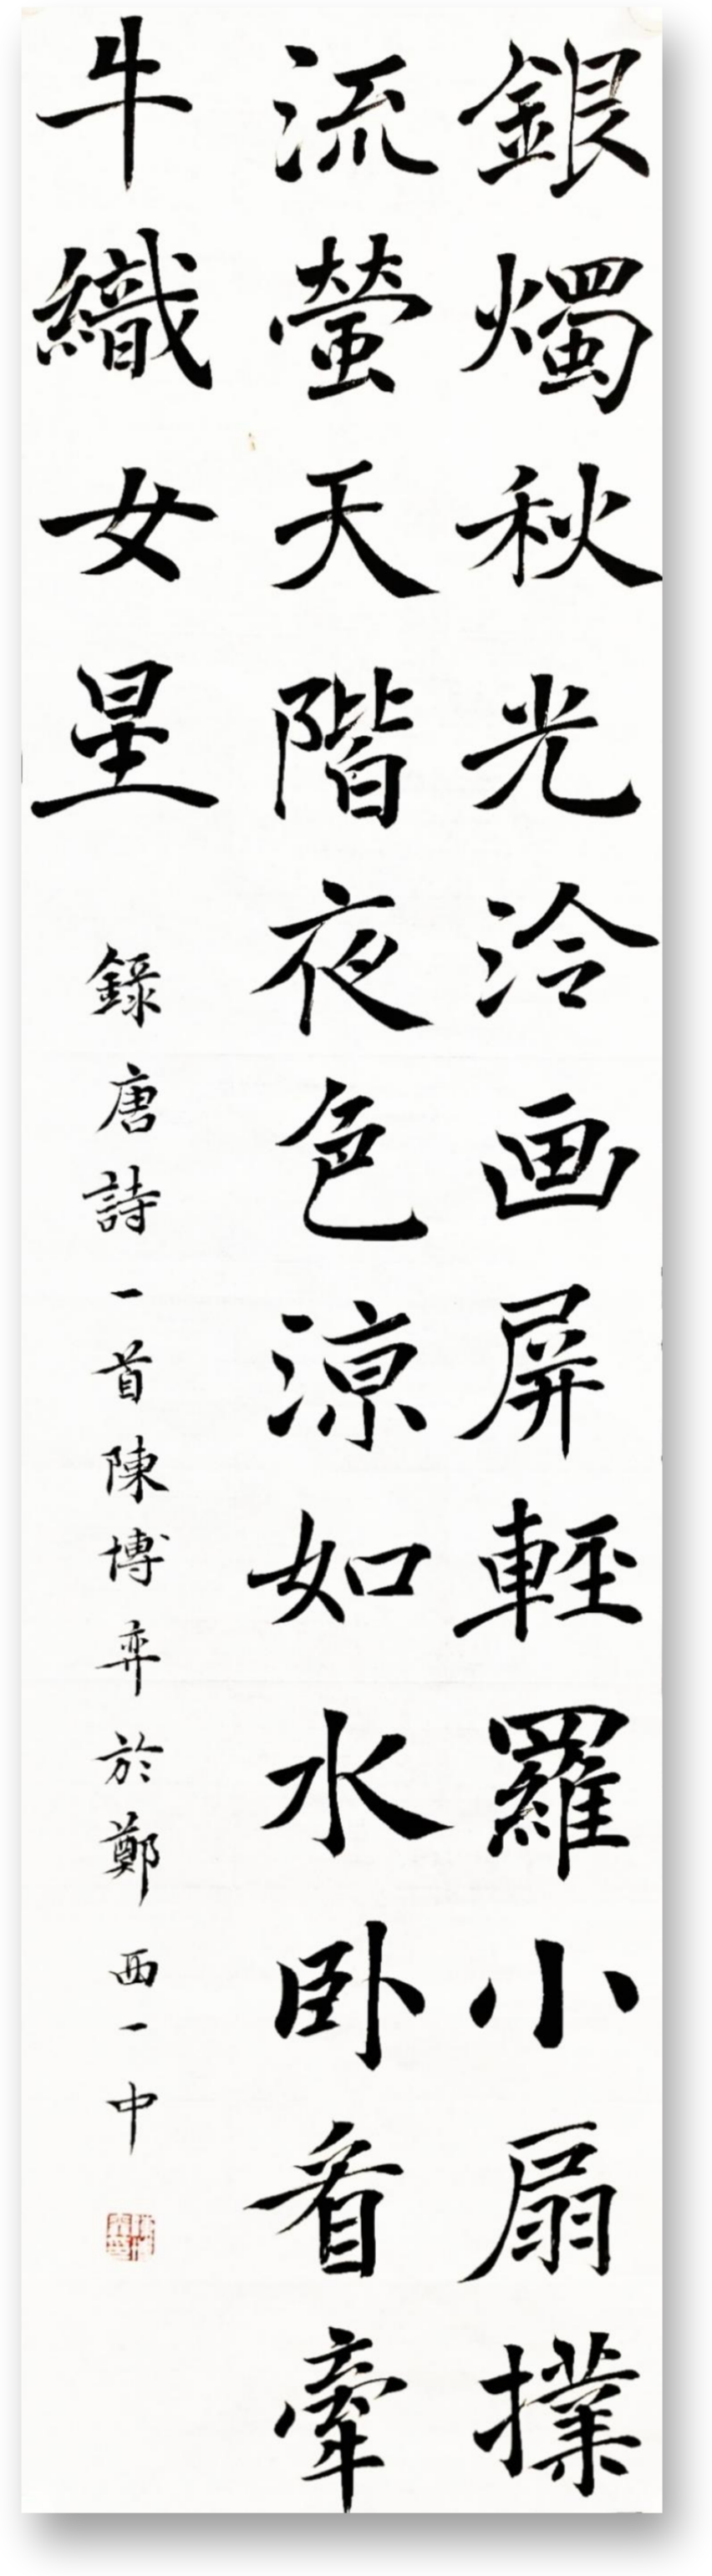 銀燭秋光泠画屏輕羅小扇撲
流螢天階夜色涼如水卧看牽
牛織女星
錄唐詩一首陳博弈於鄭西一中